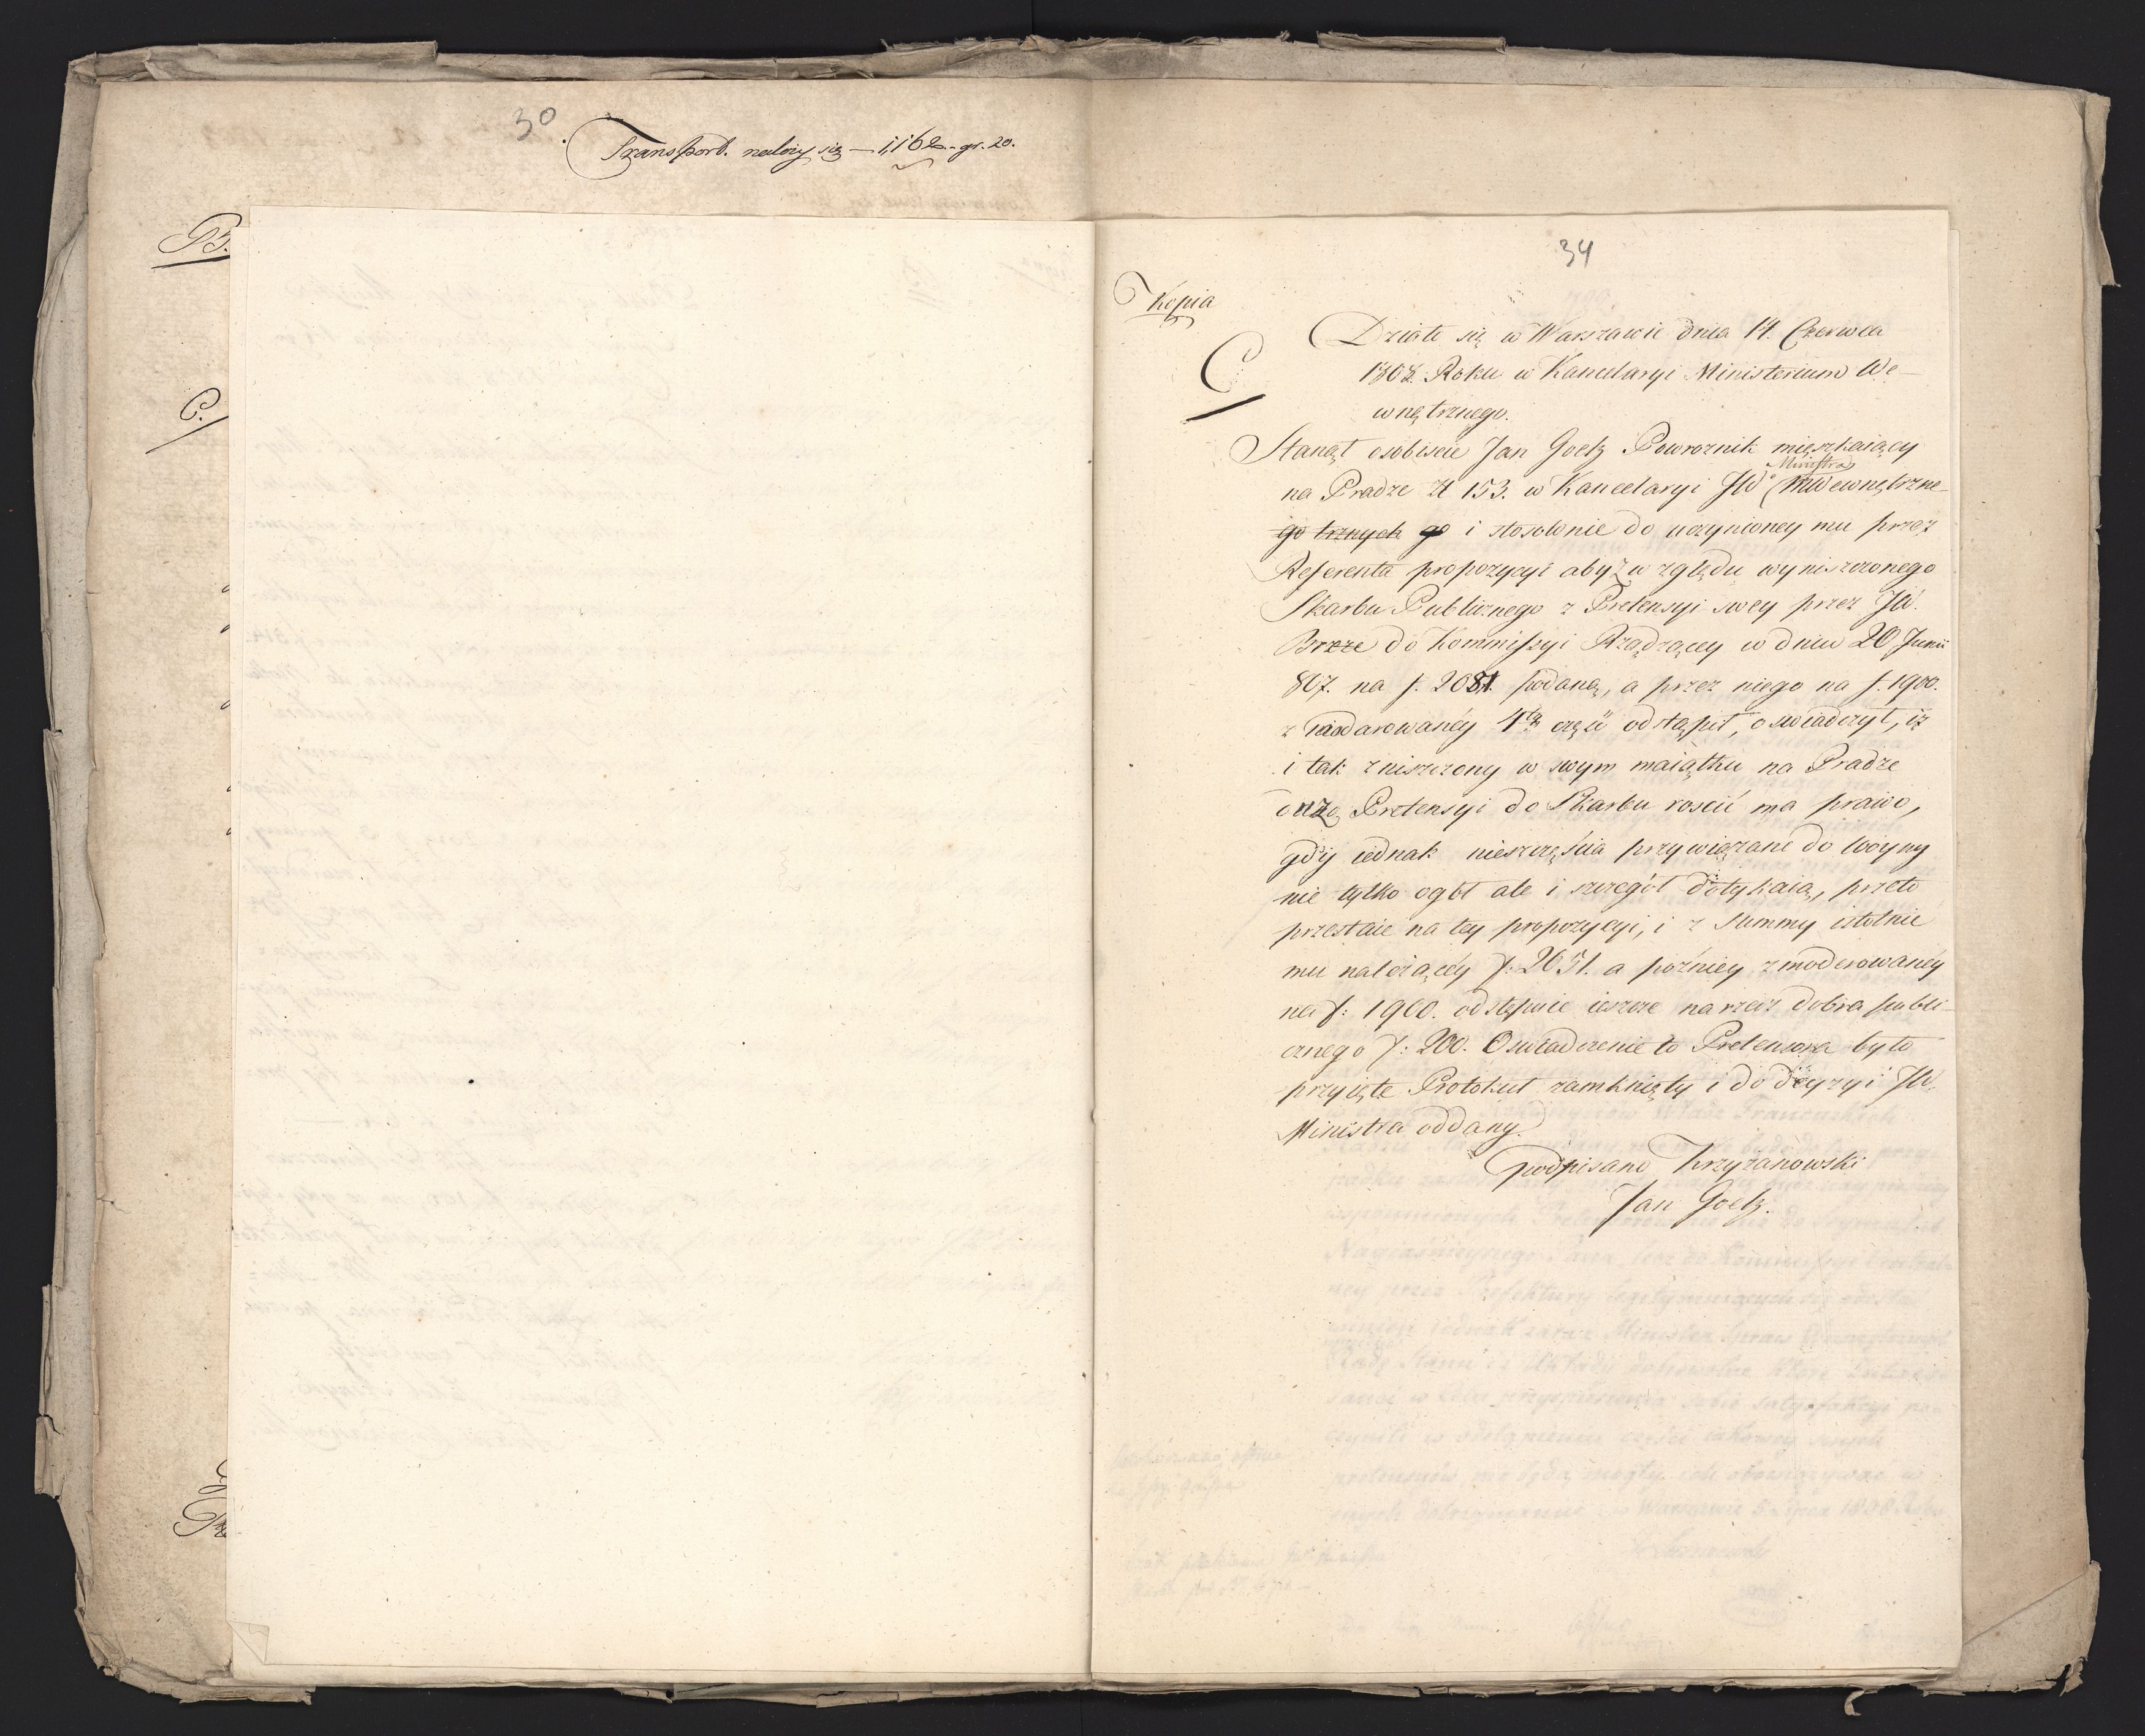 30
Transport. należy się — 1,162 - gr. 20.
B.
C.
34
Kopia
C
Działo się w Warszawie dnia 14. Czerwca
1808. Roku w Kancelaryi Ministerium We-
wnętrznego.
Stanął osobiscie Jan Goetz Powroznik mięszkaiący
Ministra
na Pradze N 153. w Kancelaryi JW Wewnętrzne-
go trznych go i stosownie do uczynioney mu przez
Referenta propozycyi aby z względu wyniszczonego
Skarbu Publicznego z Pretensyi swey przez JW.
Breze do Kommissyi Rządzącey w dniu 20 Junii
807. na f. 2051. podaną, a przez niego na f. 1900.
z 4tą częsć odstąpił, oswiadczył, iż
i tak zniszczony w swym maiątku na Pradze
Pretensyi do Skarbu roscić ma prawo,
gdy iednak nieszczęścia przywiązane do woyny
nie tylko ogół ale i szczegół dotykaią, przeto
przestaie na tey propozycyi, i z Summy istotnie
mu należącéy f: 2051. a poźniey zmoderowanéy
na f: 1900. odstępuie ieszcze na rzecz dobra publi-
cznego f: 200. Oswiadczenie to Pretensora było
przyięte Protokuł zamknięty i do decyzyi JW.
Ministra oddany.
podpisano Krzyżanowski
Jan Goetz.